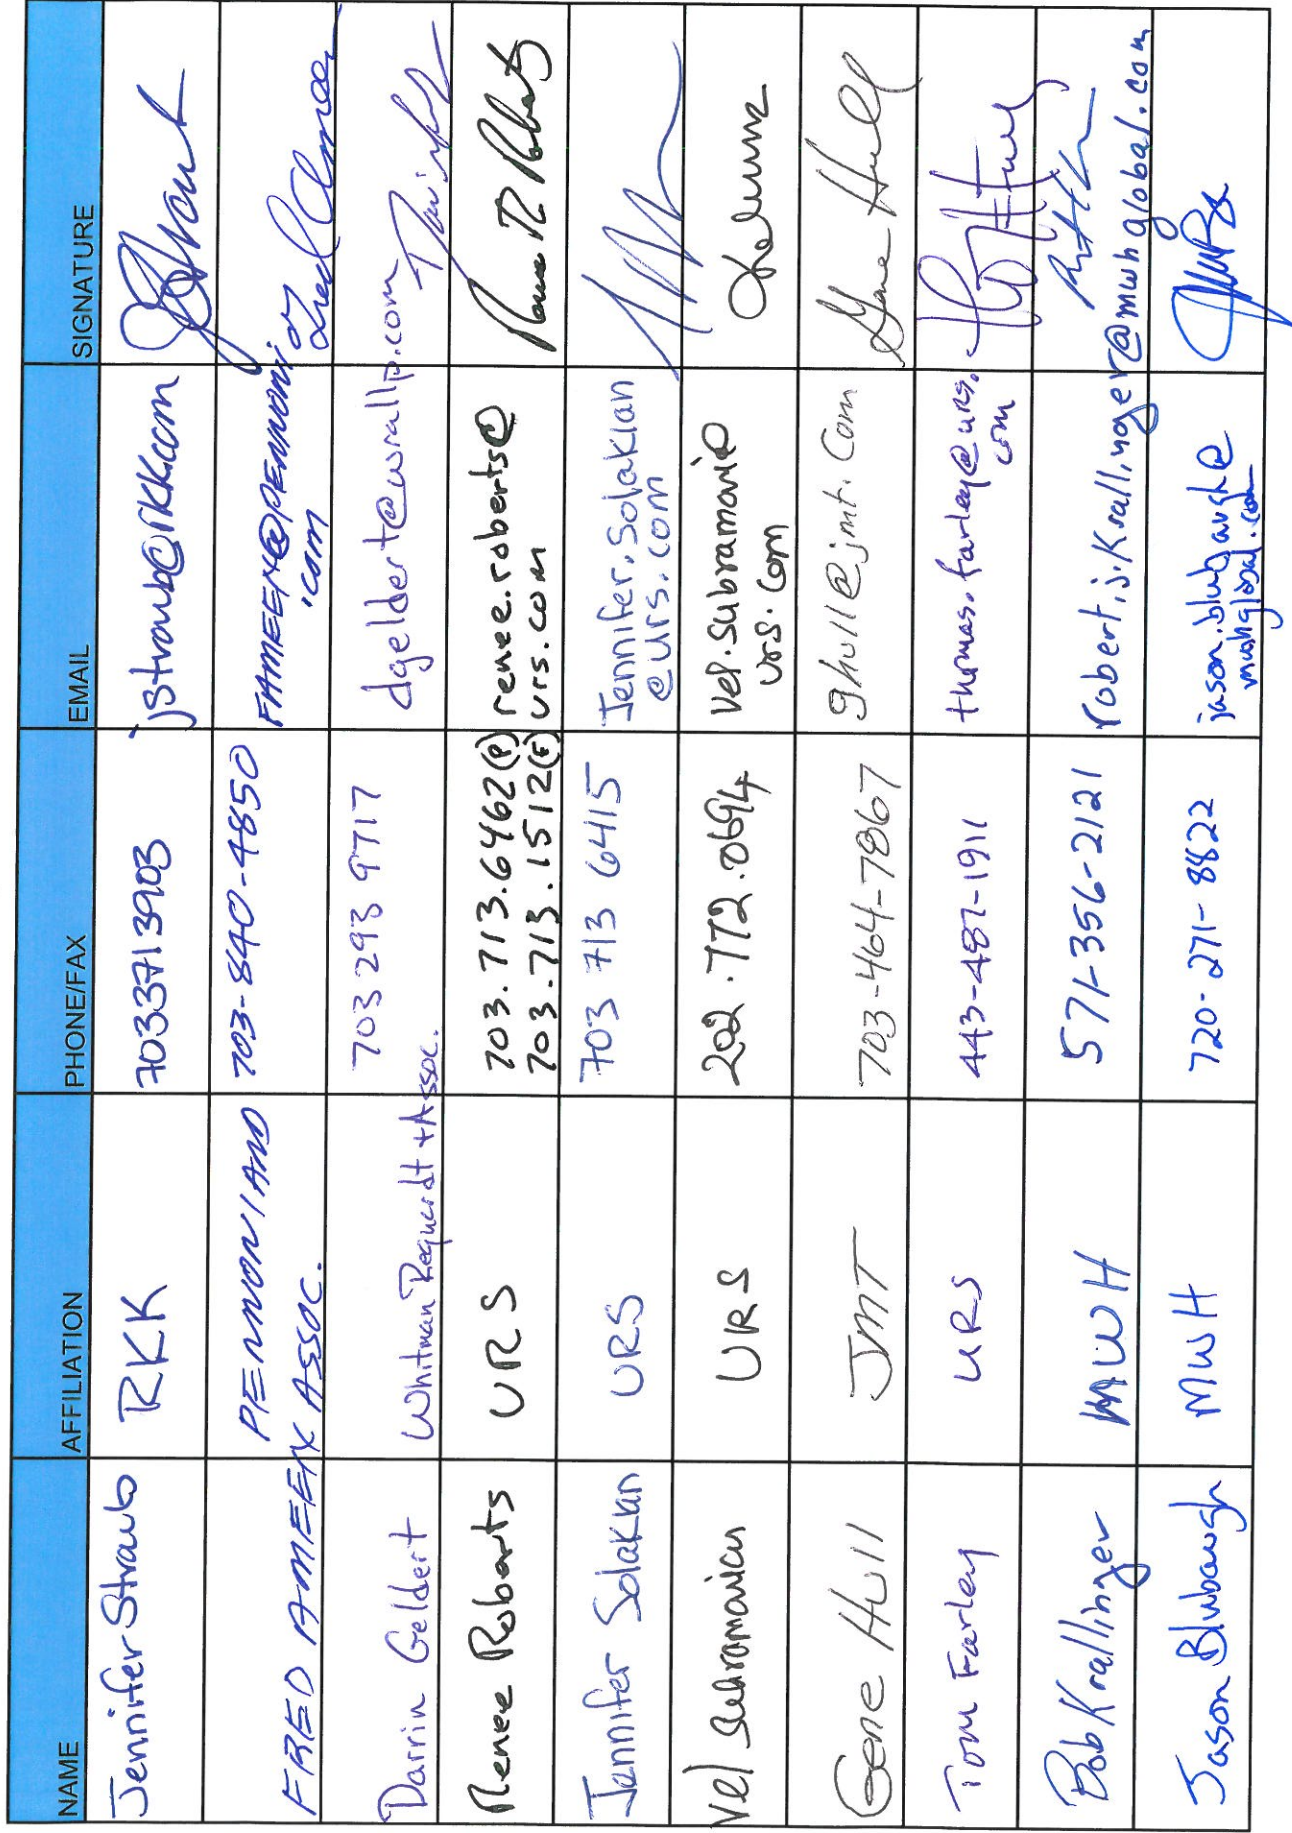 NAME AFFILIATION PHONE/FAX EMAIL SIGNATURE
Jennifer Straub RKK 7033713903 jstraub@rkk.com
FRED AMEEN PENNONI AND ASSOC. 703-840-4850 FAMEEN@PENNONI.com
Darrin Geldert Whitman Requardt + Assoc. 703 293 9717 dgeldert@wrallp.com
Renee Roberts URS 703.713.6462(P) renee.roberts@
703.713.1512(F) urs.com
Jennifer Solakian URS 703 713 6415 Jennifer.Solakian
@urs.com
Vel Subramanian URS 202.772.0694 vel.subramani@
urs.com
Gene Hull JMT 703-464-7867 ghull@jmt.com Gene Hull
Tom Farley URS 443-487-1911 thomas.farley@urs.
com
Bob Krallinger MWH 571-356-2121 robert.j.krallinger@mwhglobal.com
Jason Blubaugh MWH 720-271-8822 jason.blubaugh@
mwhglobal.com